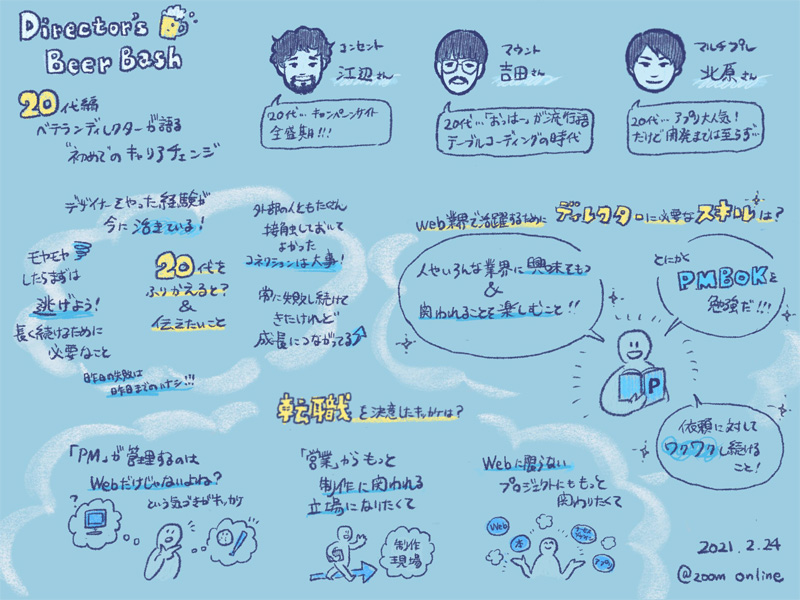 Director's
Beer Bash
20代編
ベテランディレクターが語る
"初めてのキャリアチェンジ
コンセント
江辺さん
20代…キャンペーンサイト
全盛期!!!
マウント
吉田さん
20代…「おっはー」が流行語
テーブルコーディングの時代
マルチプル
北原さん
20代…アプリ大人気!
だけど開発までは至らず…
デザイナーをやった経験が
今に活きている!
モヤモヤ
したらまずは
逃げよう!
長く続けるために
必要なこと
20代を
ふりかえると?
&
伝えたいこと
外部の人ともたくさん
接触しておいて
よかった
コネクションは大事!
常に失敗し続けて
きたけれど
成長につながってる
昨日の失敗は
昨日までのハナシ!!!
Web業界で活躍するために
ディレクターに必要なスキルは?
人やいろんな業界に興味をもつ
&
関われることを楽しむこと!!
とにかく
PMBOKを
勉強だ!!!
P
依頼に対して
ワクワクし続ける
こと!
転職を決意したキッカケは?
「PM」が管理するのは
Webだけじゃないよね?
という気づきがキッカケ
?
「営業」からもっと
制作に関われる
立場になりたくて
制作
現場
Webに限らない
プロジェクトにももっと
関わりたくて
Web
本
アプリ
2021.2.24
@zoom online